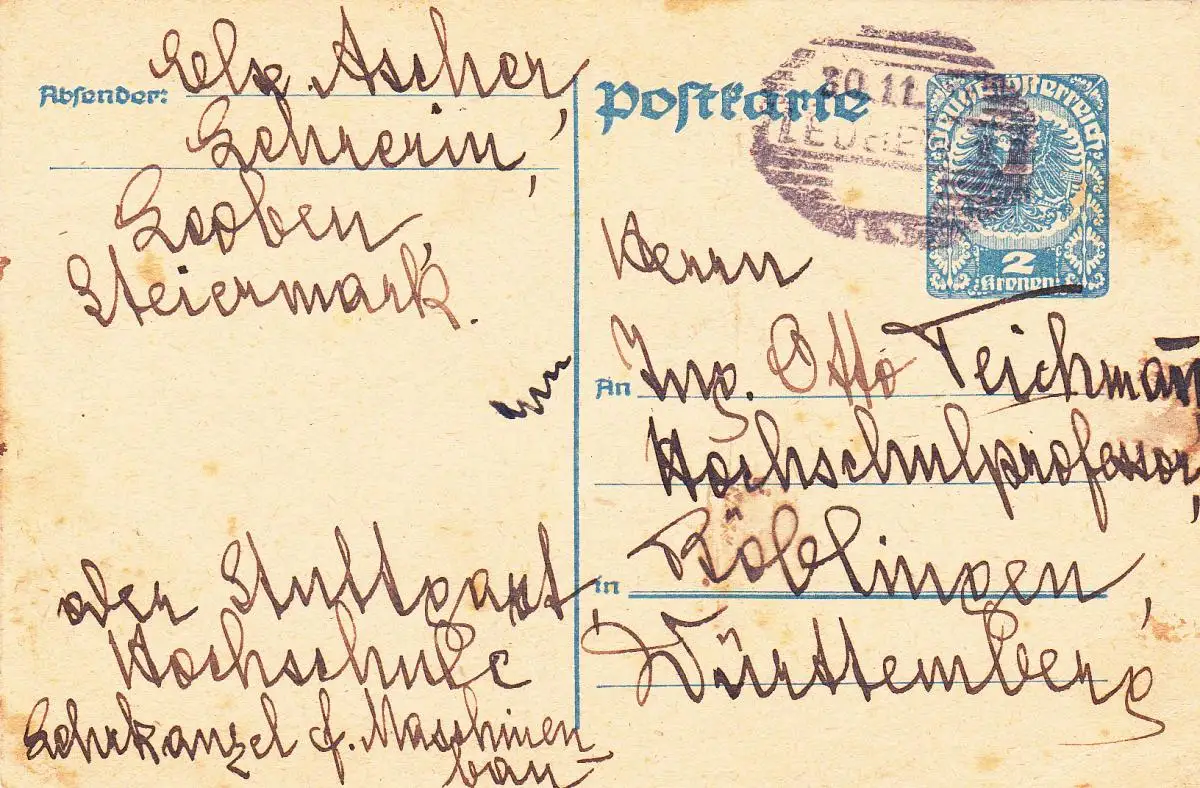 Absender: Else Ascher,
Lehrerin,
Leoben,
Steiermark.
oder Stuttgart,
Hochschule
Lehrkanzel f. Maschinen
bau
Postkarte
30.11.
Deutschösterreich
2
Kronen
Herrn
An Ing. Otto Teichmann
Hochschulprofessor,
in Böblingen,
Württemberg